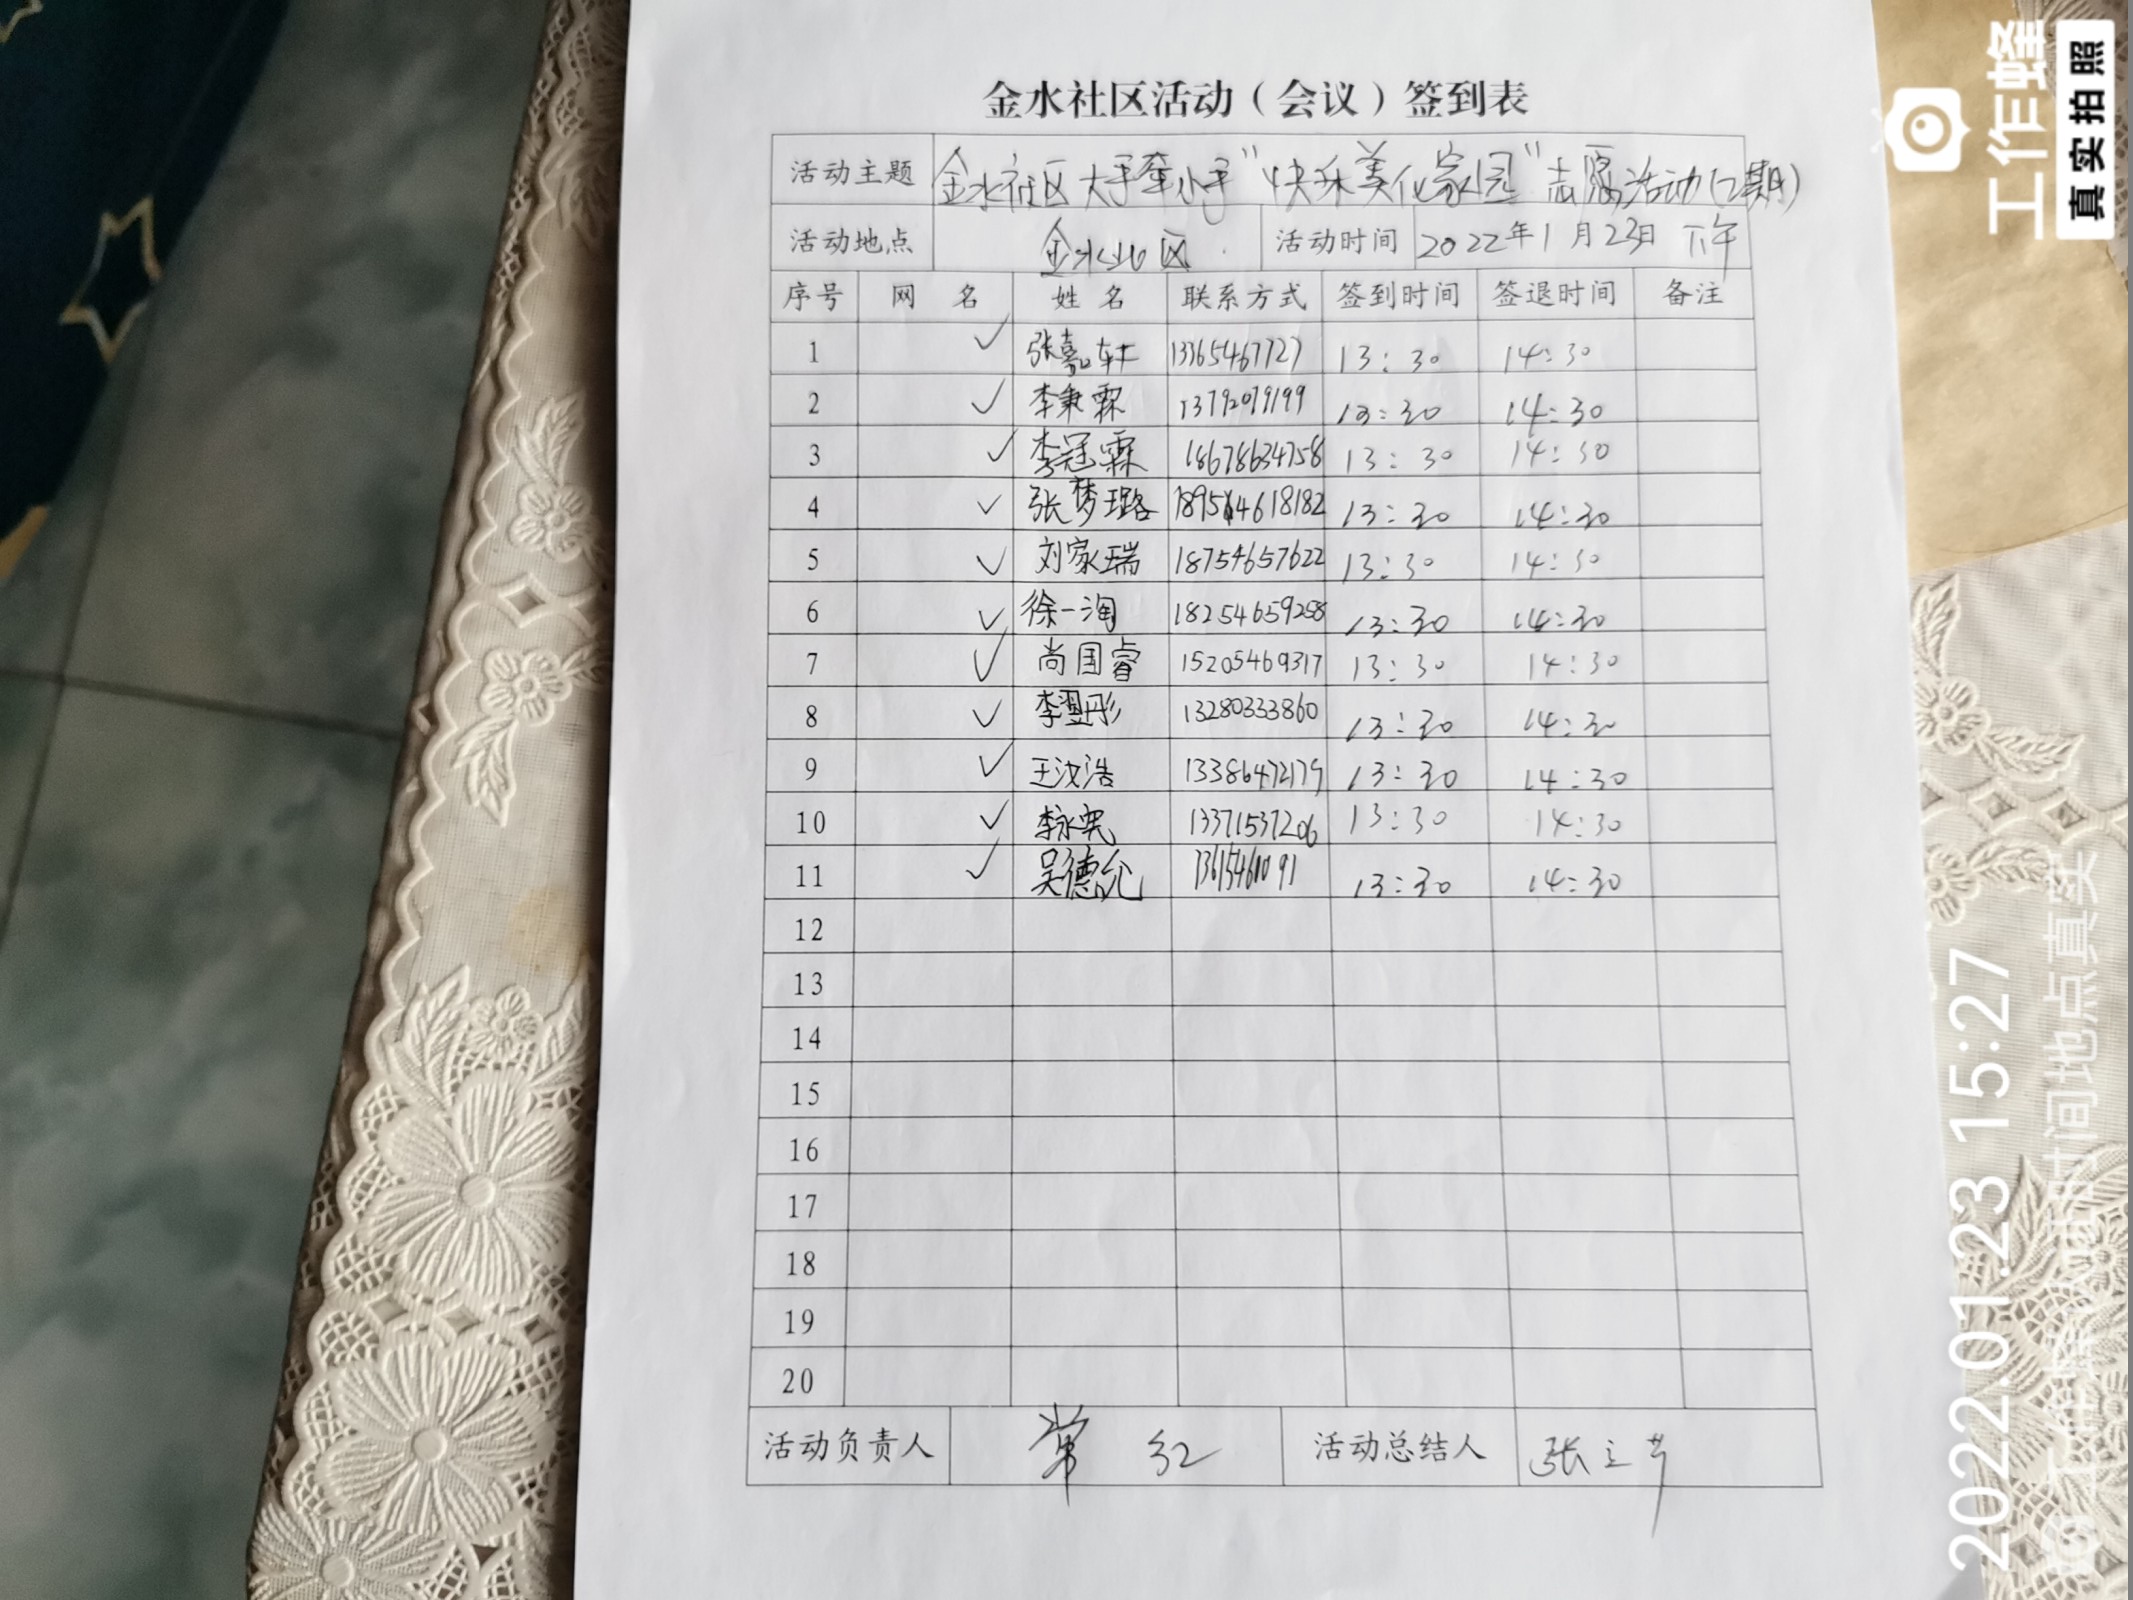 金水社区活动（会议）签到表
活动主题 金水社区大手牵小手"快乐美化家园"志愿活动(2期)
活动地点 金水北区 活动时间 2022年1月23日 下午
序号 网名 姓名 联系方式 签到时间 签退时间 备注
1 ✓ 张嘉轩 13365467727 13:30 14:30
2 ✓ 李秉霖 13792079199 13:30 14:30
3 ✓ 李冠霖 18678634758 13:30 14:30
4 ✓ 张梦璐 13:30 14:30
5 ✓ 刘家瑞 18754657622 13:30 14:30
6 ✓ 徐一淘 18254659258 13:30 14:30
7 ✓ 尚国睿 15205469317 13:30 14:30
8 ✓ 李翌彤 13280333860 13:30 14:30
9 ✓ 王汝浩 13386472179 13:30 14:30
10 ✓ 李永 13371537206 13:30 14:30
11 ✓ 吴德 13615461091 13:30 14:30
12
13
14
15
16
17
18
19
20
活动负责人 常红 活动总结人 张立
工作蜂
真实拍照
2022.01.23 15:27
时间地点真实